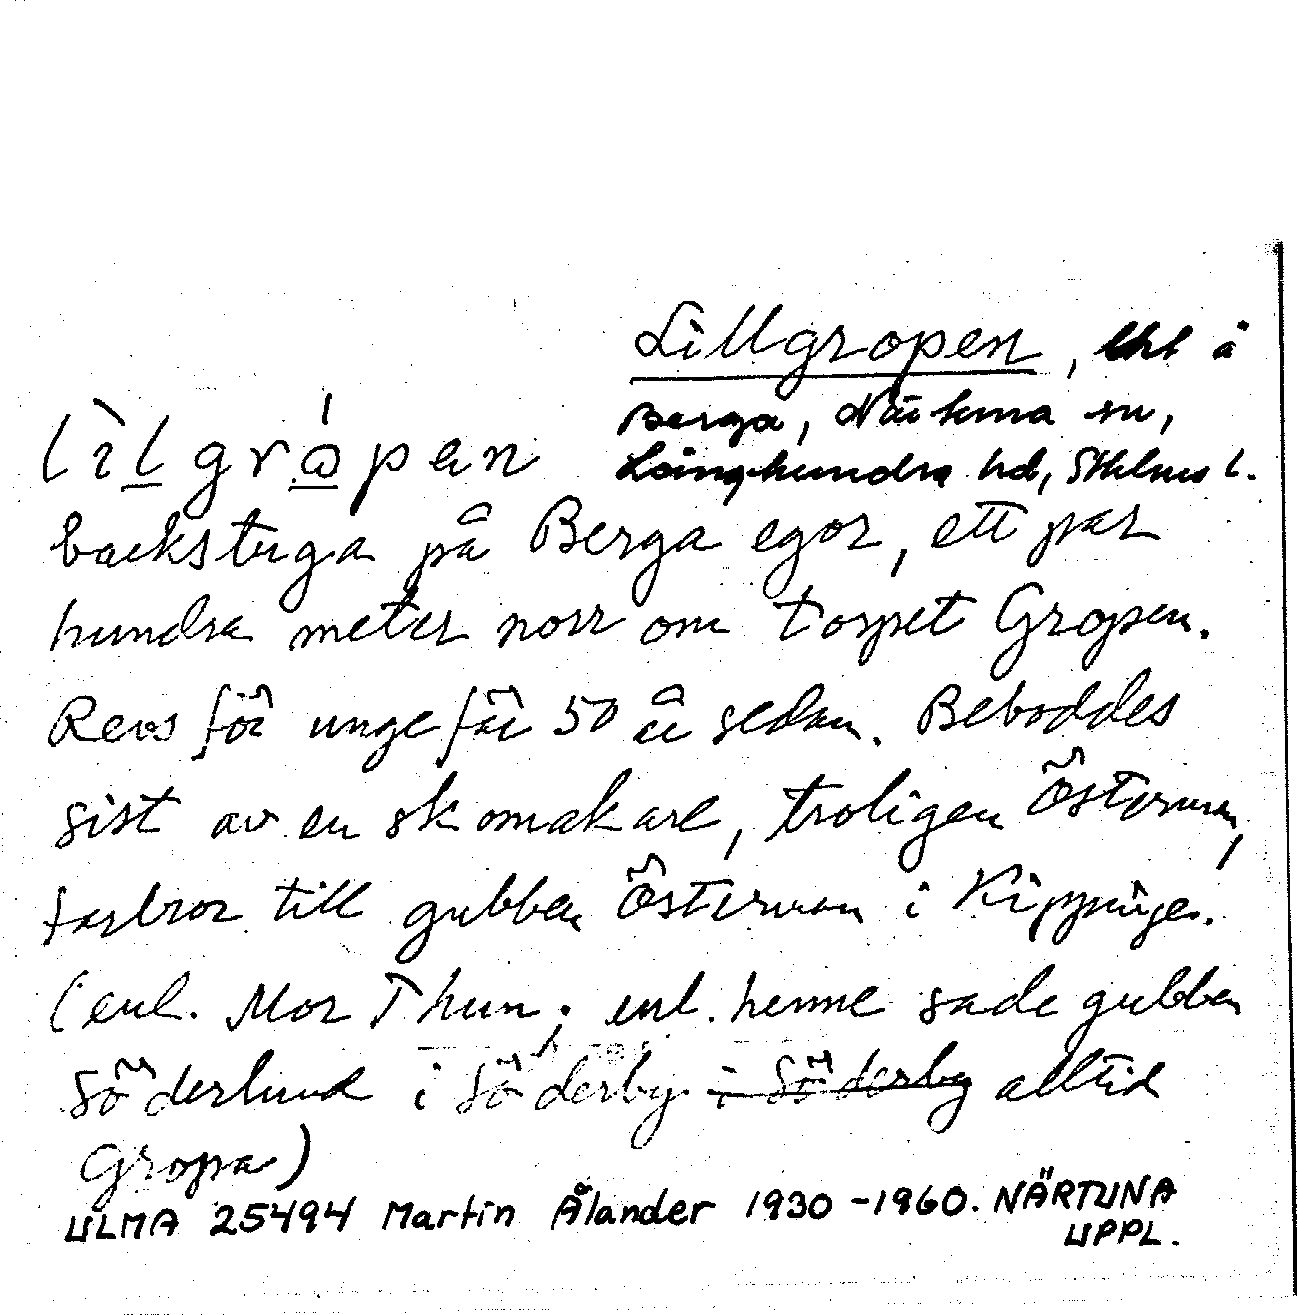 Lillgropen, å
Berga, Närtuna sn,
Långhundra hd, Sthlms l.
lìlgrópan
backstuga på Berga egor, ett par
hundra meter norr om torpet Gropen.
Revs för ungefär 50 år sedan. Beboddes
sist av en skomakare, troligen Österman,
farbror till gubben Österman i Kippinge.
(enl. Mor Thun; enl. henne sade gubben
Söderlund i Söderby i Söderby alltid
Gropa)
ULMA 25494 Martin Ålander 1930-1960. NÄRTUNA
UPPL.